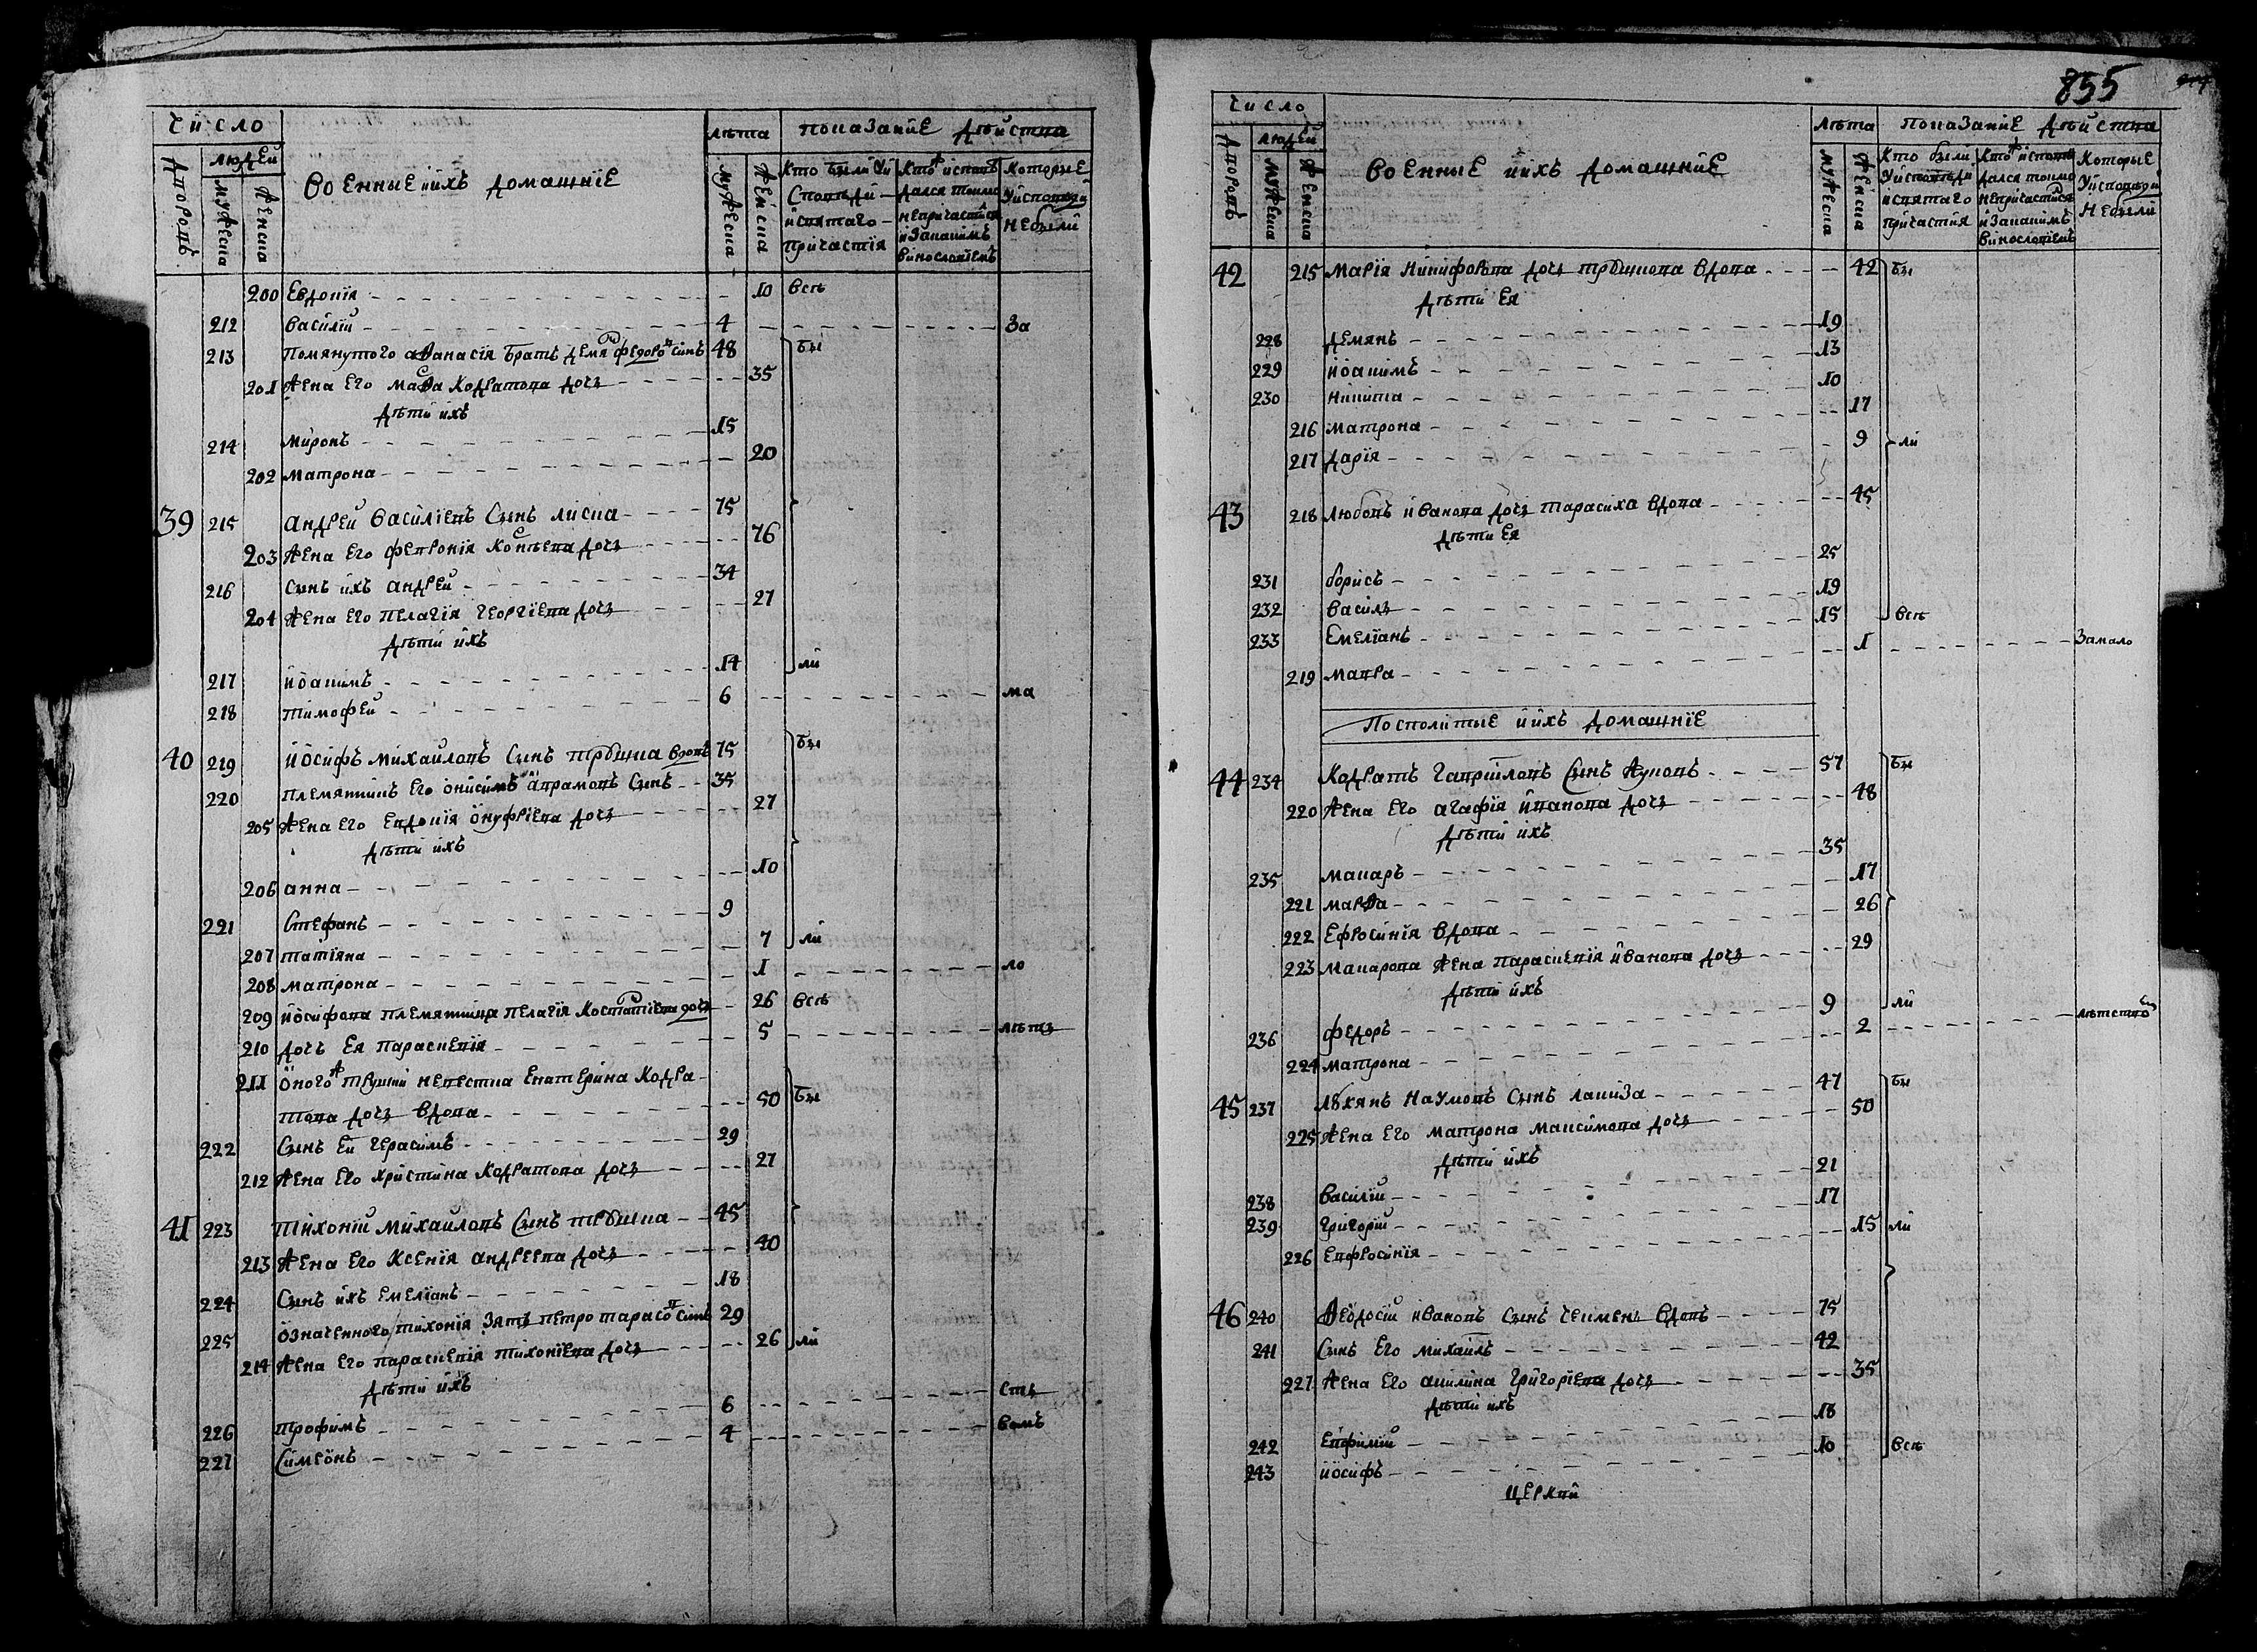 Число
Людей
Дворовъ
Мужеска
Женска
Военные и ихъ домашнїе
Лѣта
Мужеска
Женска
Показанїе дѣйства
Кто были у исповѣди и святаго причастїя
Кто ж исповѣдался токмо не причастился и за какимъ винословїемъ
Которые у исповѣди не были
200 Евдокїя 10 всѣ
212 Василїй 4 за
213 Помянутого аѳанасїя братъ демяд федоровъ синъ 48 бы
201 Жена его марѳа Кодратова дочь 35
Дѣти ихъ
214 Миронъ 15
202 Матрона 20
39 215 Андрей Василїевъ сынъ лиска 75
203 Жена его февронїя дочь 76
216 Сынъ ихъ андрей 34
204 Жена его пелагїя георгїева дочь 27
Дѣти ихъ
217 Иоакимъ 14 ли
218 Тимофей 6 ма
40 219 Иосифъ михайловъ сынъ трѹшка вдовъ 75 бы
220 Племянникъ его онисимъ аврамовъ сынъ 35
205 Жена его евдокїя онуфрїева дочь 27
Дѣти ихъ
206 анна 10
221 Стефанъ 9
207 татїяна 7 ли
208 матрона 1 ло
209 иосифова племянница пелагїя дочь 26 всѣ
210 дочь ея параскевїя 5 лѣтъ
211 Оного ж трушки невестка Екатерина Кодра-
това дочь вдова 50 бы
222 Сынъ ей герасимъ 29
212 Жена его христина Кодратова дочь 27
41 223 Тихонїй михайловъ сынъ трѹшка 45
213 Жена его Ксенїя андреева дочь 40
224 Сынъ ихъ емелїанъ 18
225 Означенного тихонїя зять петро тарасовъ синъ 29
214 Жена его параскевїя тихонїева дочь 26 ли
Дѣти ихъ
226 трофимъ 6 сть
227 Симеонъ 4 вомъ
855
Число
Людей
Дворовъ
Мужеска
Женска
Военные и ихъ домашнїе
Лѣта
Мужеска
Женска
Показанїе дѣйства
Кто были у исповѣди и святаго причастїя
Кто ж исповѣдался токмо не причастился и за какимъ винословїемъ
Которые у исповѣди не были
42 215 Марїя никифорова дочь трѹшкова вдова 42 бы
Дѣти ея
228 демянъ 19
229 иоакимъ 13
230 никита 10
216 матрона 17
217 дарїя 9 ли
43 218 Любовъ иванова дочь тарасиха вдова 45
дѣти ея
231 борисъ 25
232 василь 19
233 Емелїанъ 15 всѣ
219 мавра 1 за мало
Посполитые и ихъ домашнїе
44 234 Кодратъ гаврїиловъ сынъ жуковъ 57 бы
220 Жена его агафїя иванова дочь 48
Дѣти ихъ
235 макаръ 35
221 марѳа 17
222 Ефросинїя вдова 26
223 Макарова жена параскевїя иванова дочь 29
Дѣти ихъ
236 федоръ 9 ли
224 матрона 2 лѣтство
45 237 Лѹкянъ наумовъ сынъ лакиза 47 бы
225 Жена его матрона максимова дочь 50
Дѣти ихъ
238 василїй 21
239 григорїй 17
226 Евфросинїя 15 ли
46 240 Ѳеодосїй ивановъ сынъ вдовъ 75
241 Сынъ его михаилъ 42
227 Жена его акилина григорїева дочь 35
Дѣти ихъ
242 Евфимїй 18
243 иосифъ 10 всѣ
церкви